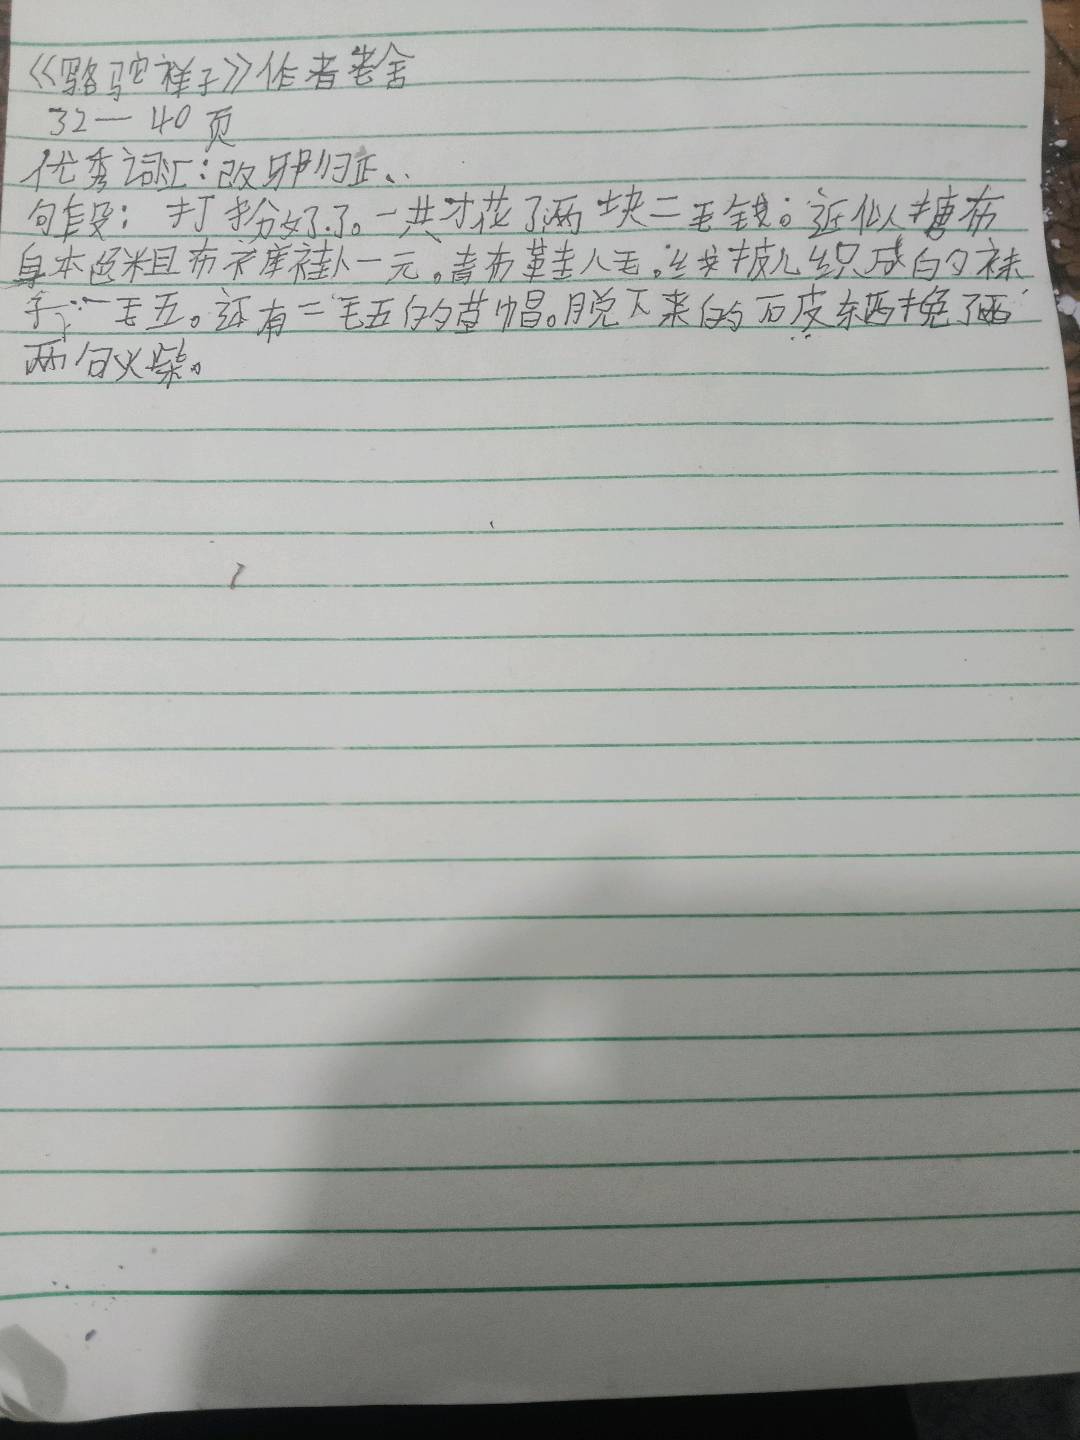 《骆驼祥子》作者老舍
32—40页
优秀词汇：改邪归正、
句段：打扮好了。一共才花了两块二毛钱。近似搪布
身本色粗布裤褂一元。青布鞋八毛。线披儿织成的袜
子一毛五。还有二毛五的草帽。脱下来的 东西换了两
两包火柴。